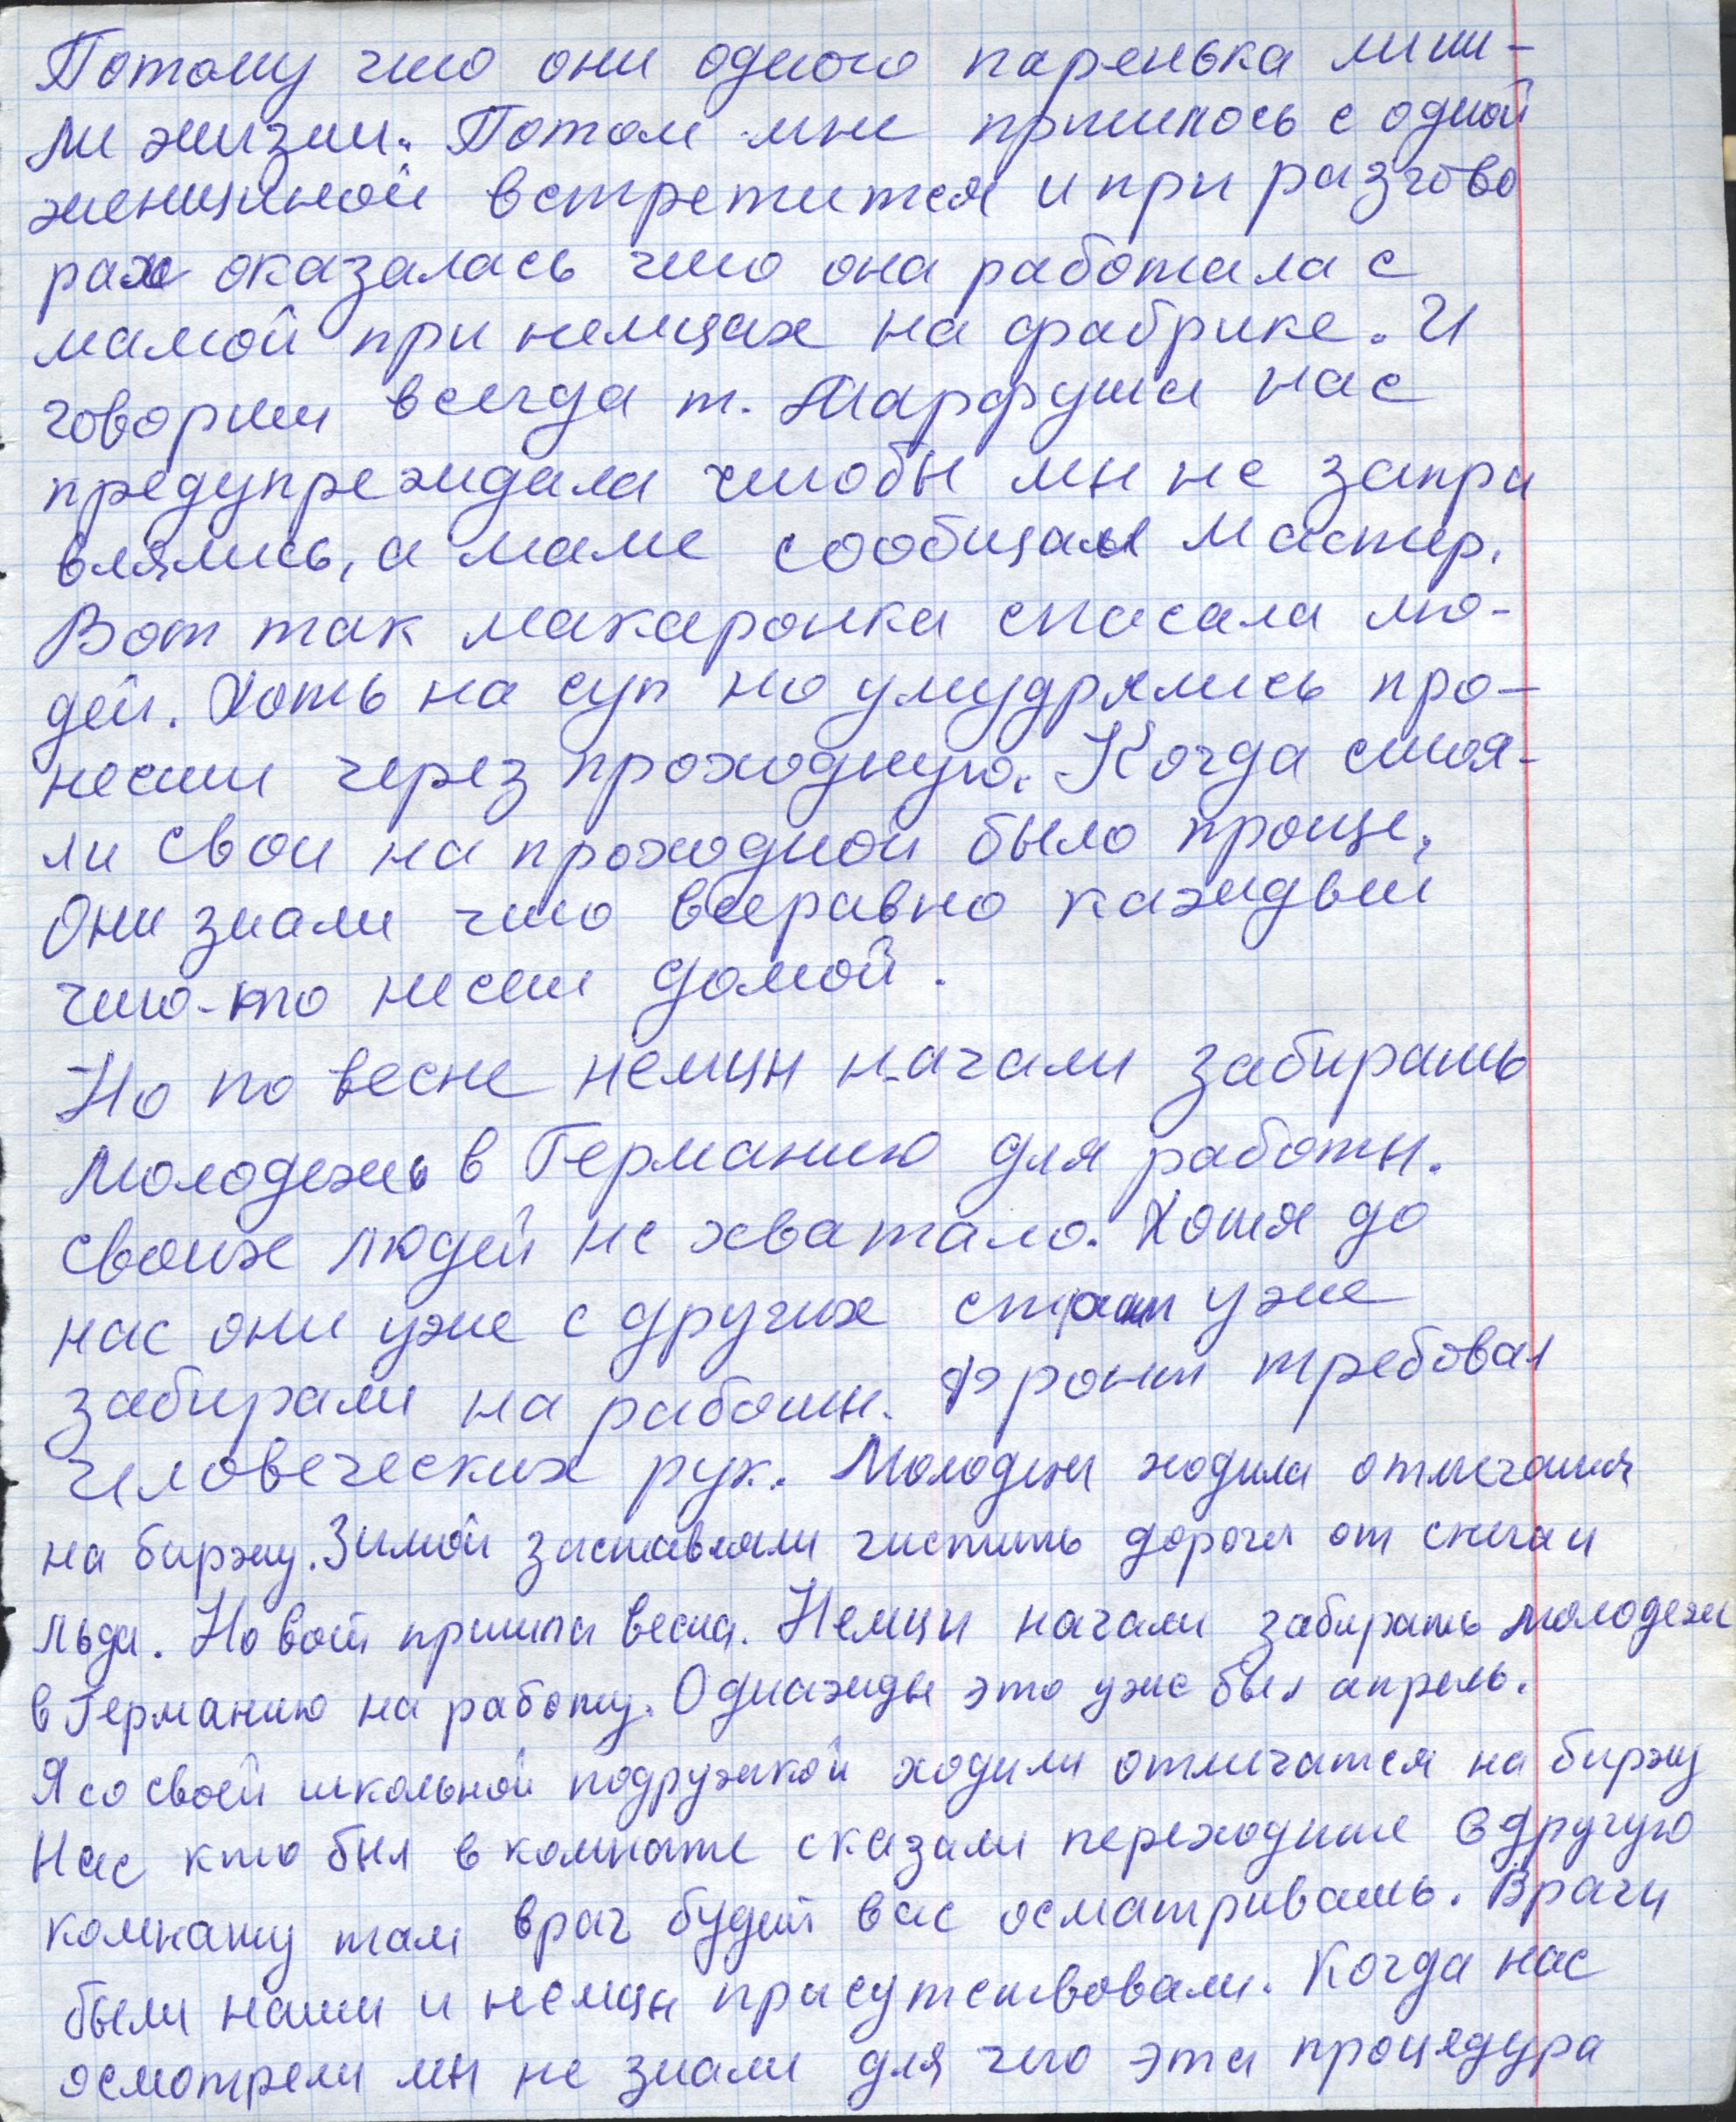 Потому что они одного паренька лиши-
ли жизни. Потом мне пришлось с одной
женщиной встретится и при разгово
рах оказалась что она работала с
мамой при немцах на фабрике. И
говорит всегда т. Марфуша нас
предупреждала чтобы мы не запра
влялись, а маме сообщал мастер.
Вот так макаронка спасала лю-
дей. Хоть на суп но умудрялись про-
нести через проходную. Когда стоя-
ли свои на проходной было проще.
Они знали что всеравно каждый
что-то несет домой.
Но по весне немцы начали забирать
молодежь в Германию для работы.
Своих людей не хватало. Хотя до
нас они уже с других стран уже
забирали на работы. Фронт требовал
человеческих рук. Молодежь ходила отмечатся
на биржу. Зимой заставляли чистить дороги от снега и
льда. Но вот пришла весна. Немцы начали забирать молодежь
в Германию на работу. Однажды это уже был апрель.
Я со своей школьной подружкой ходили отмечатся на биржу
Нас кто был в комнате сказали переходите в другую
комнату там врач будет вас осматривать. Врачи
были наши и немцы присутствовали. Когда нас
осмотрели мы не знали для чего эта процедура